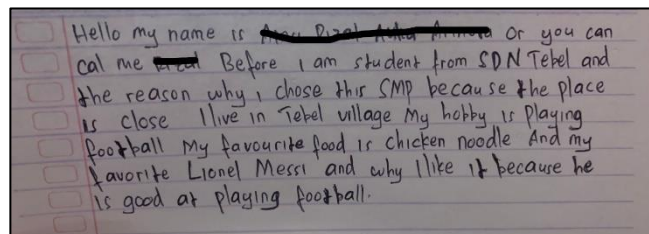 Hello my name is Or you can
cal me Before I am student from SDN Tebel and
the reason why I chose this SMP because the place
is close I live in Tebel village My hobby is Playing
football My favourite food is chicken noodle And my
favorite Lionel Messi and why I like it because he
is good at playing football.